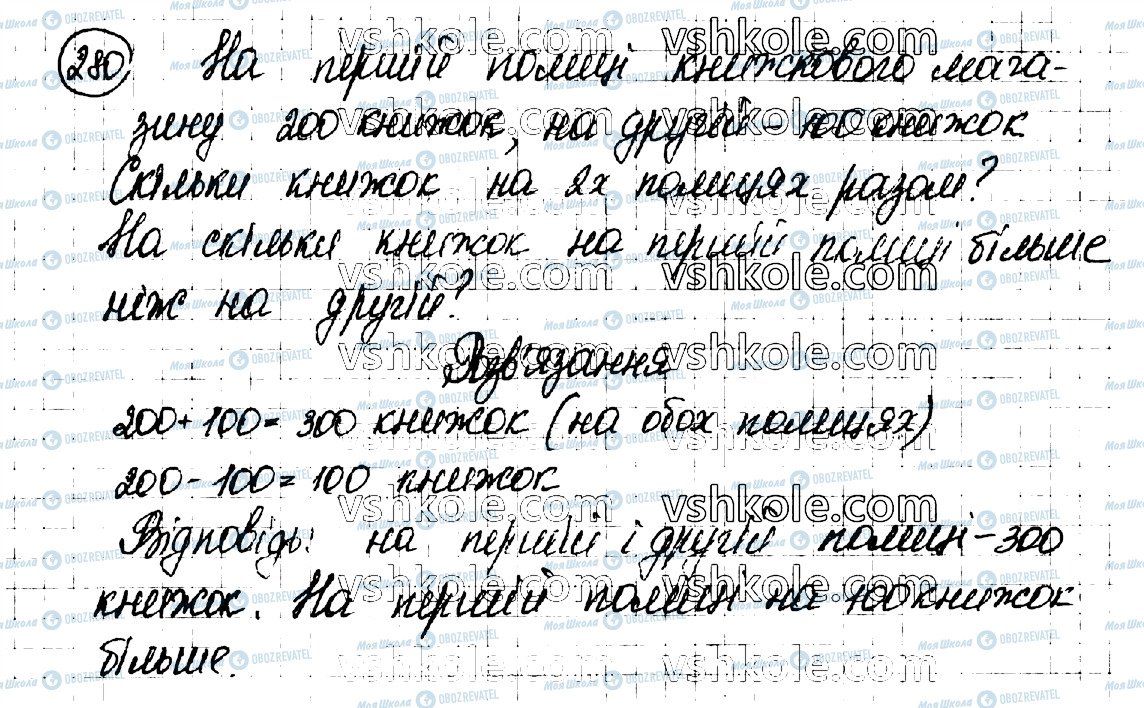 280, На першій полиці книжкового мага-
зину 200 книжок, на другій - 100 книжок
Скільки книжок на 2х полицях разом?
На скільки книжок на першій полиці більше
ніж на другій?
Розв'язання
200+100=300 книжок (на обох полицях)
200-100=100 книжок
Відповідь: на першій і другій полиці - 300
книжок. На першій полиці на 100 книжок
більше.